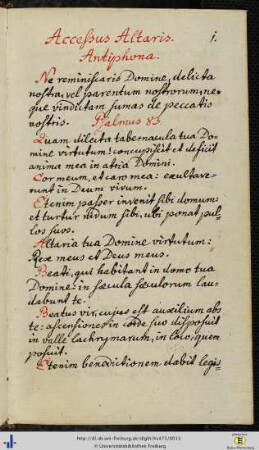 i
Accessus Altaris.
Antiphona.
Ne reminiscaris Domine, delicta
nostra, vel parentum nostrorum, ne,
que vindictam sumas de peccatis
nostris. Psalmus 83
Quam dilecta tabernacula tua Do,
mine virtutum: concupiscit et deficit
anima mea in atria Domini.
Cor meum, et caro mea: exultave,
runt in Deum vivum.
Etenim passer invenit sibi domum:
et turtur nidum sibi, ubi ponat pul,
los suos.
Altaria tua Domine virtutum:
Rex meus et Deus meus.
Beati, qui habitant in domo tua
Domine: in sæcula sæculorum lau,
dabunt te.
Beatus vir, cujus est auxilium abs
te: ascensiones in corde suo disposuit
in valle lachrymarum, in loco, quem
posuit.
Etenim benedictionem dabit legis,
http://dl.ub.uni-freiburg.de/diglit/hs473/0013
© Universitätsbibliothek Freiburg